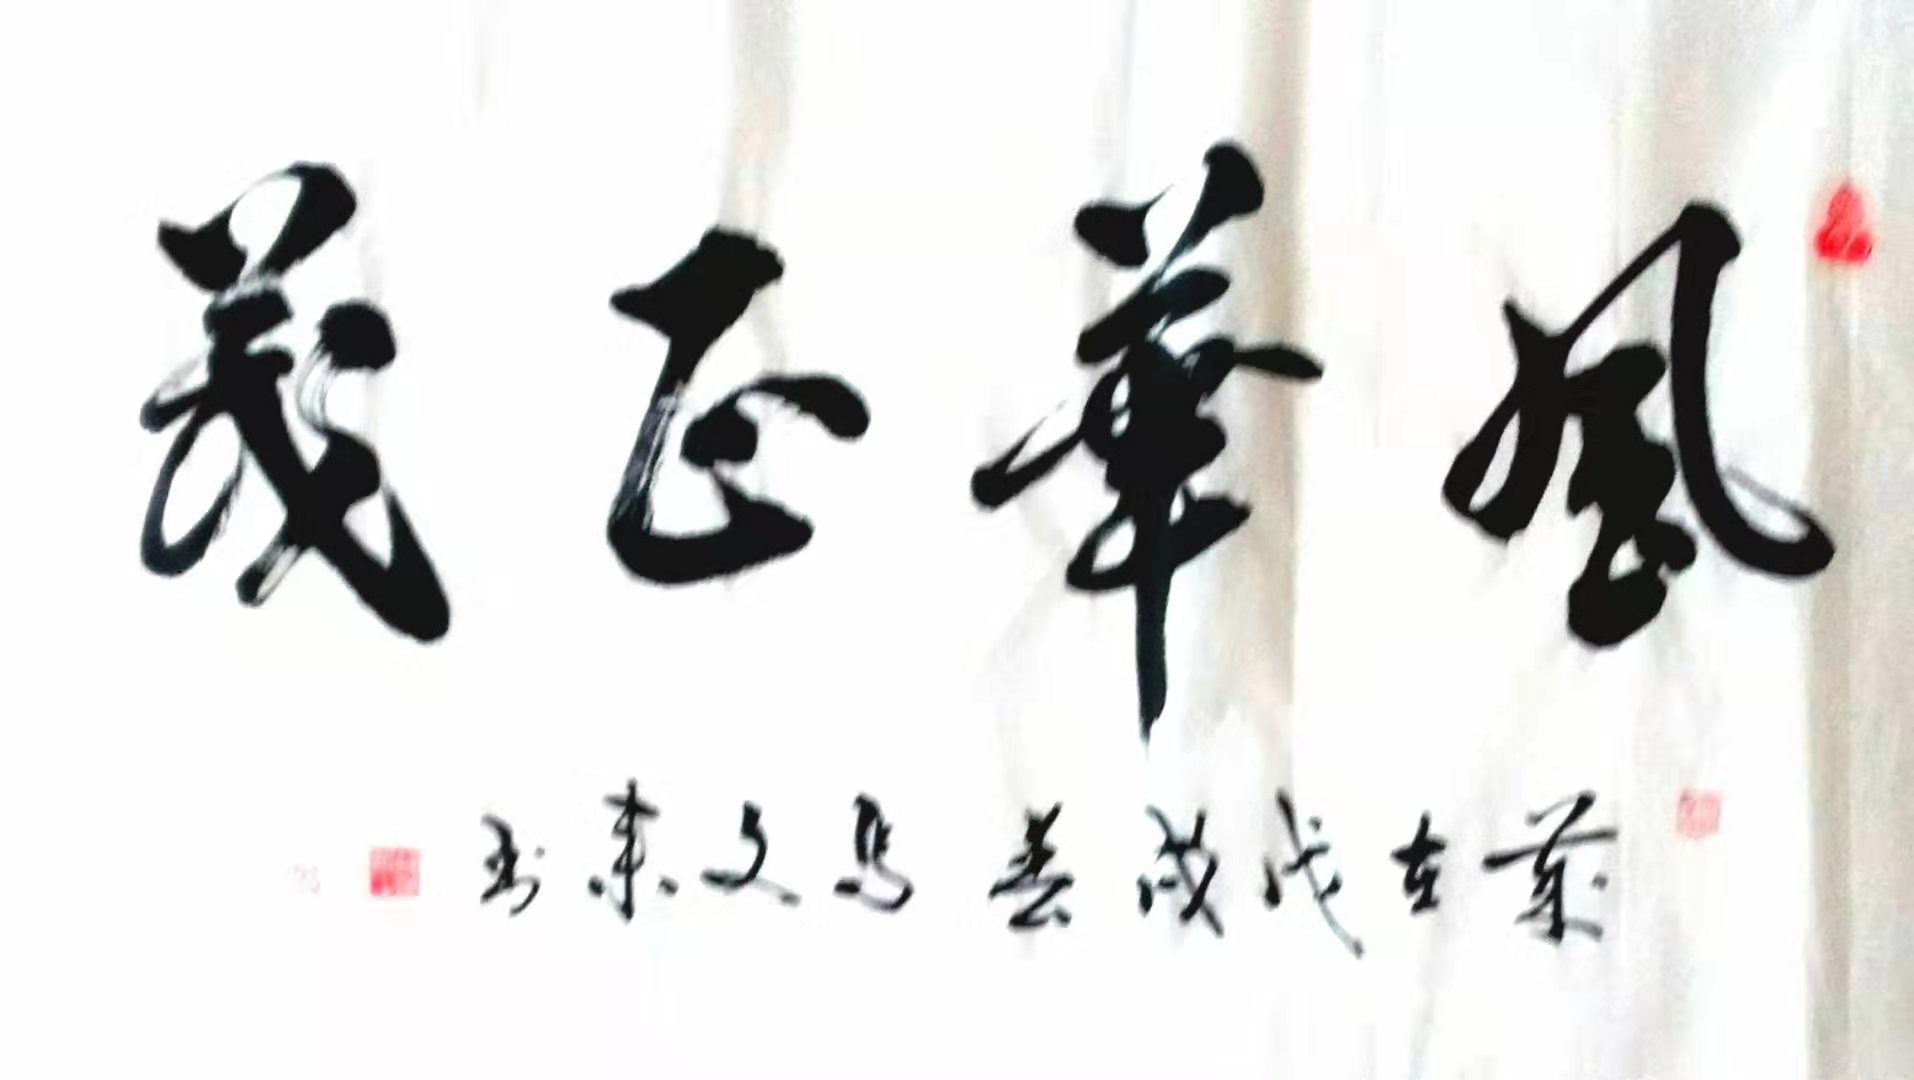 風華正茂
歲在戊戌春馬文來書